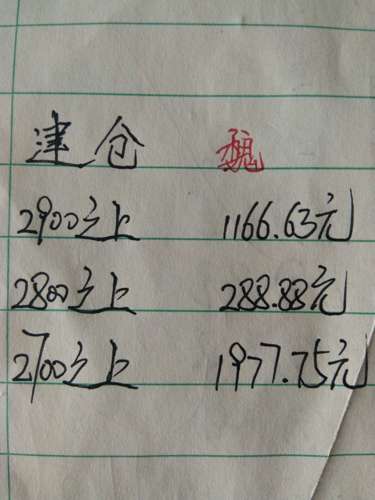 建仓 魏
2900之上 1166.63元
2800之上 288.88元
2700之上 1977.75元